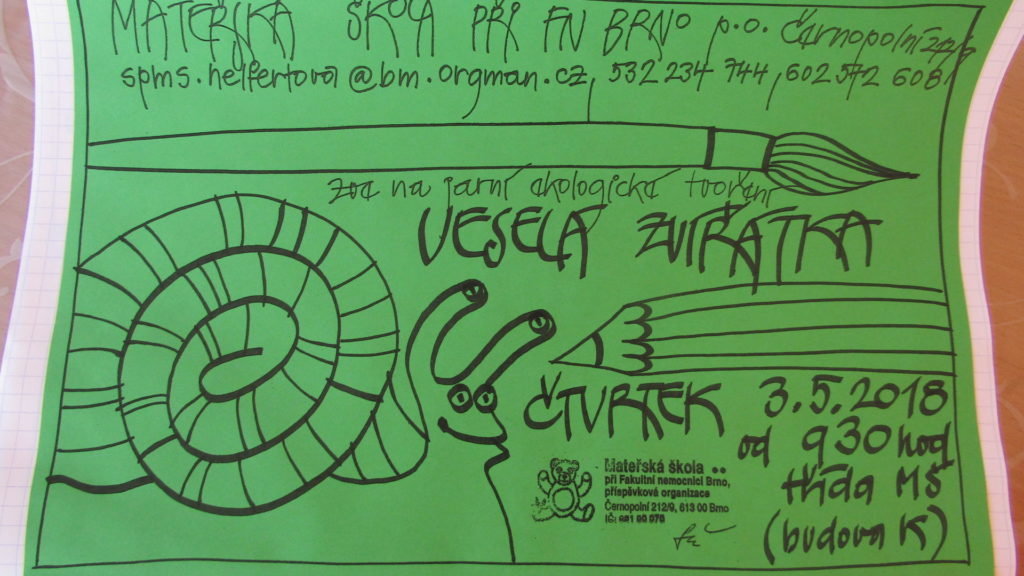 MATEŘSKÁ ŠKOLA PŘI FN BRNO p.o. Černopolní 212/9
spms.helfertova@bm.orgman.cz, 532 234 744, 602 572 608
zve na jarní ekologické tvoření
VESELÁ ZVÍŘÁTKA
ČTVRTEK 3.5.2018
od 930 hod
třída MŠ
(budova K)
Mateřská škola
při Fakultní nemocnici Brno,
příspěvková organizace
Černopolní 212/9, 613 00 Brno